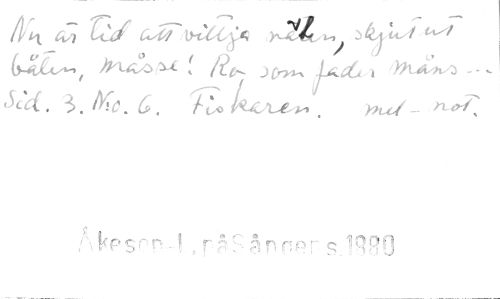 Nu är tid att vittja näten, skjut ut
båten, måsse! Ro, som fader Måns ...
Sid. 3. No. 6. Fiskaren. mel-not.
Åkeson-L, påSånger s.1980